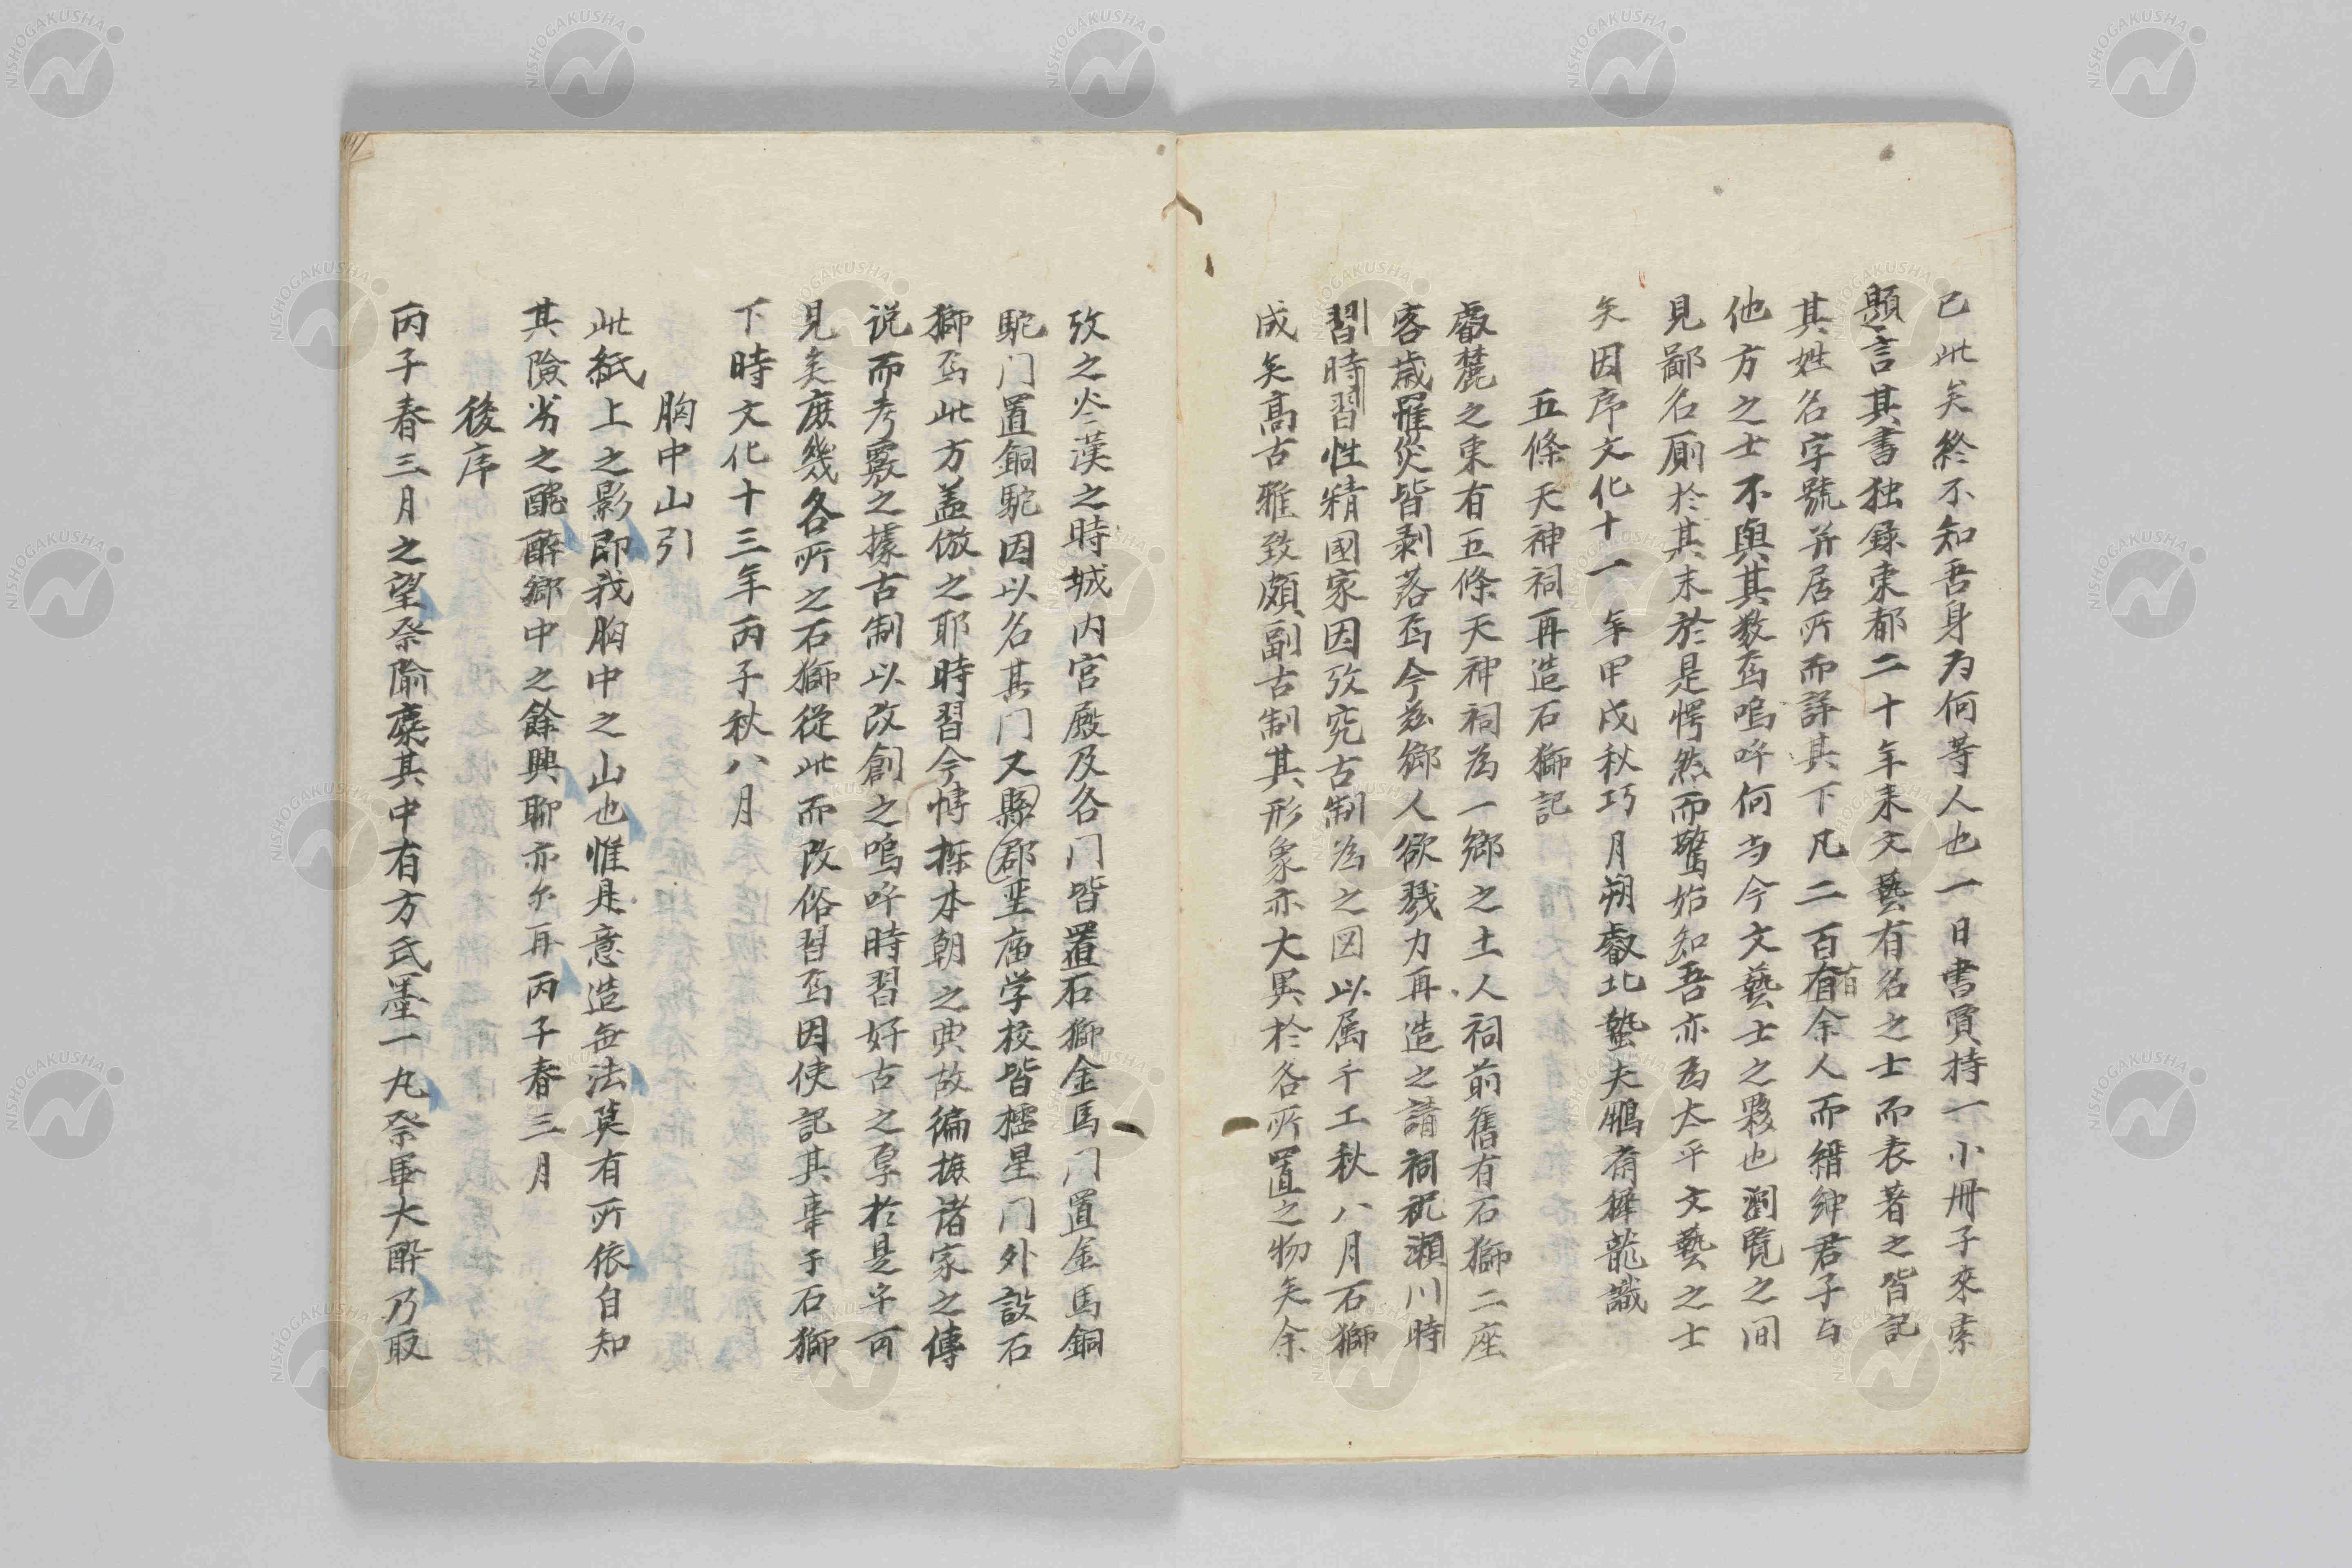 已此矣終不知吾身为何等人也一日書賈持一小冊子來索
題言其書独録東都二十年来文藝有名之士而表著之皆記
其姓名字號并居所而詳其下凡二百有余人而縉紳君子与
他方之士不與其数焉嗚呼何与今文藝士之夥也瀏覧之间
見鄙名厠於其末於是愕然而驚始知吾亦為太平文藝之士
矣因序文化十一年甲戌秋巧月朔叡北蟄夫鵬斎穉龍識
五條天神祠再造石獅記
叡麓之東有五條天神祠為一郷之土人祠前舊有石獅二座
客歳罹災皆剥落焉今茲郷人欲戮力再造之請祠祝瀬川時
習時習性精國家因攷究古制為之図以属于工秋八月石獅
成矣高古雅致頗副古制其形象亦大異於各所置之物矣余
攷之炎漢之時城内宮殿及各门皆置石獅金馬门置金馬銅
駝门置銅駝因以名其门又縣郡聖庙学校皆櫺星门外設石
獅焉此方盖倣之耶時習今博採本朝之典故徧摭諸家之傳
说而考覈之據古制以改創之嗚呼時習好古之厚於是乎可
見矣庶幾各所之石獅從此而改俗習焉因使記其事于石獅
下時文化十三年丙子秋八月
胸中山引
此紙上之影即我胸中之山也惟是意造無法莫有所依自知
其險劣之醜醉郷中之餘興聊亦尔再丙子春三月
後序
丙子春三月之望祭隃麋其中有方氏墨一丸祭畢大酔乃取